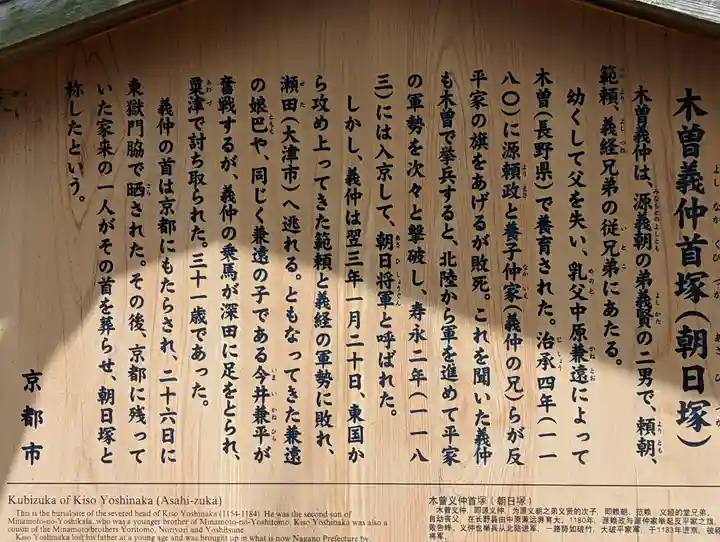 木曽義仲首塚(朝日塚)
木曽義仲は、源義朝の弟義賢の二男で、頼朝、
範頼、義経兄弟の従兄弟にあたる。
幼くして父を失い、乳父中原兼遠によって
木曽(長野県)で養育された。治承四年(一一
八〇)に源頼政と養子仲家(義仲の兄)らが反
平家の旗をあげるが敗死。これを聞いた義仲
も木曽で挙兵すると、北陸から軍を進めて平家
の軍勢を次々と撃破し、寿永二年(一一八
三)には入京して、朝日将軍と呼ばれた。
しかし、義仲は翌三年一月二十日、東国か
ら攻め上ってきた範頼と義経の軍勢に敗れ、
瀬田(大津市)へ逃れる。ともなってきた兼遠
の娘巴や、同じく兼遠の子である今井兼平が
奮戦するが、義仲の乗馬が深田に足をとられ、
粟津で討ち取られた。三十一歳であった。
義仲の首は京都にもたらされ、二十六日に
東獄門脇で晒された。その後、京都に残って
いた家来の一人がその首を葬らせ、朝日塚と
称したという。
京都市
Kubizuka of Kiso Yoshinaka (Asahi-zuka)
This is the burial site of the severed head of Kiso Yoshinaka (1154-1184). He was the second son of
Minamoto-no-Yoshikata, who was a younger brother of Minamoto-no-Yoshitomo. Kiso Yoshinaka was also a
cousin of the Minamoto brothers Yoritomo, Noriyori and Yoshitsune.
Kiso Yoshinaka lost his father at a young age and was brought up in what is now Nagano Prefecture by
木曾义仲首塚(朝日塚)
木曾义仲,即源义仲,为源义朝之弟义贤的次子,即赖朝、范赖、义经的堂兄弟。
自幼丧父,在长野县由中原兼远养育大,1180年,源赖政与源仲家举起反平家之旗,
败告终,义仲也举兵从北陆进军,一路势如破竹,大破平家军,于1183年进京,被称
将军。